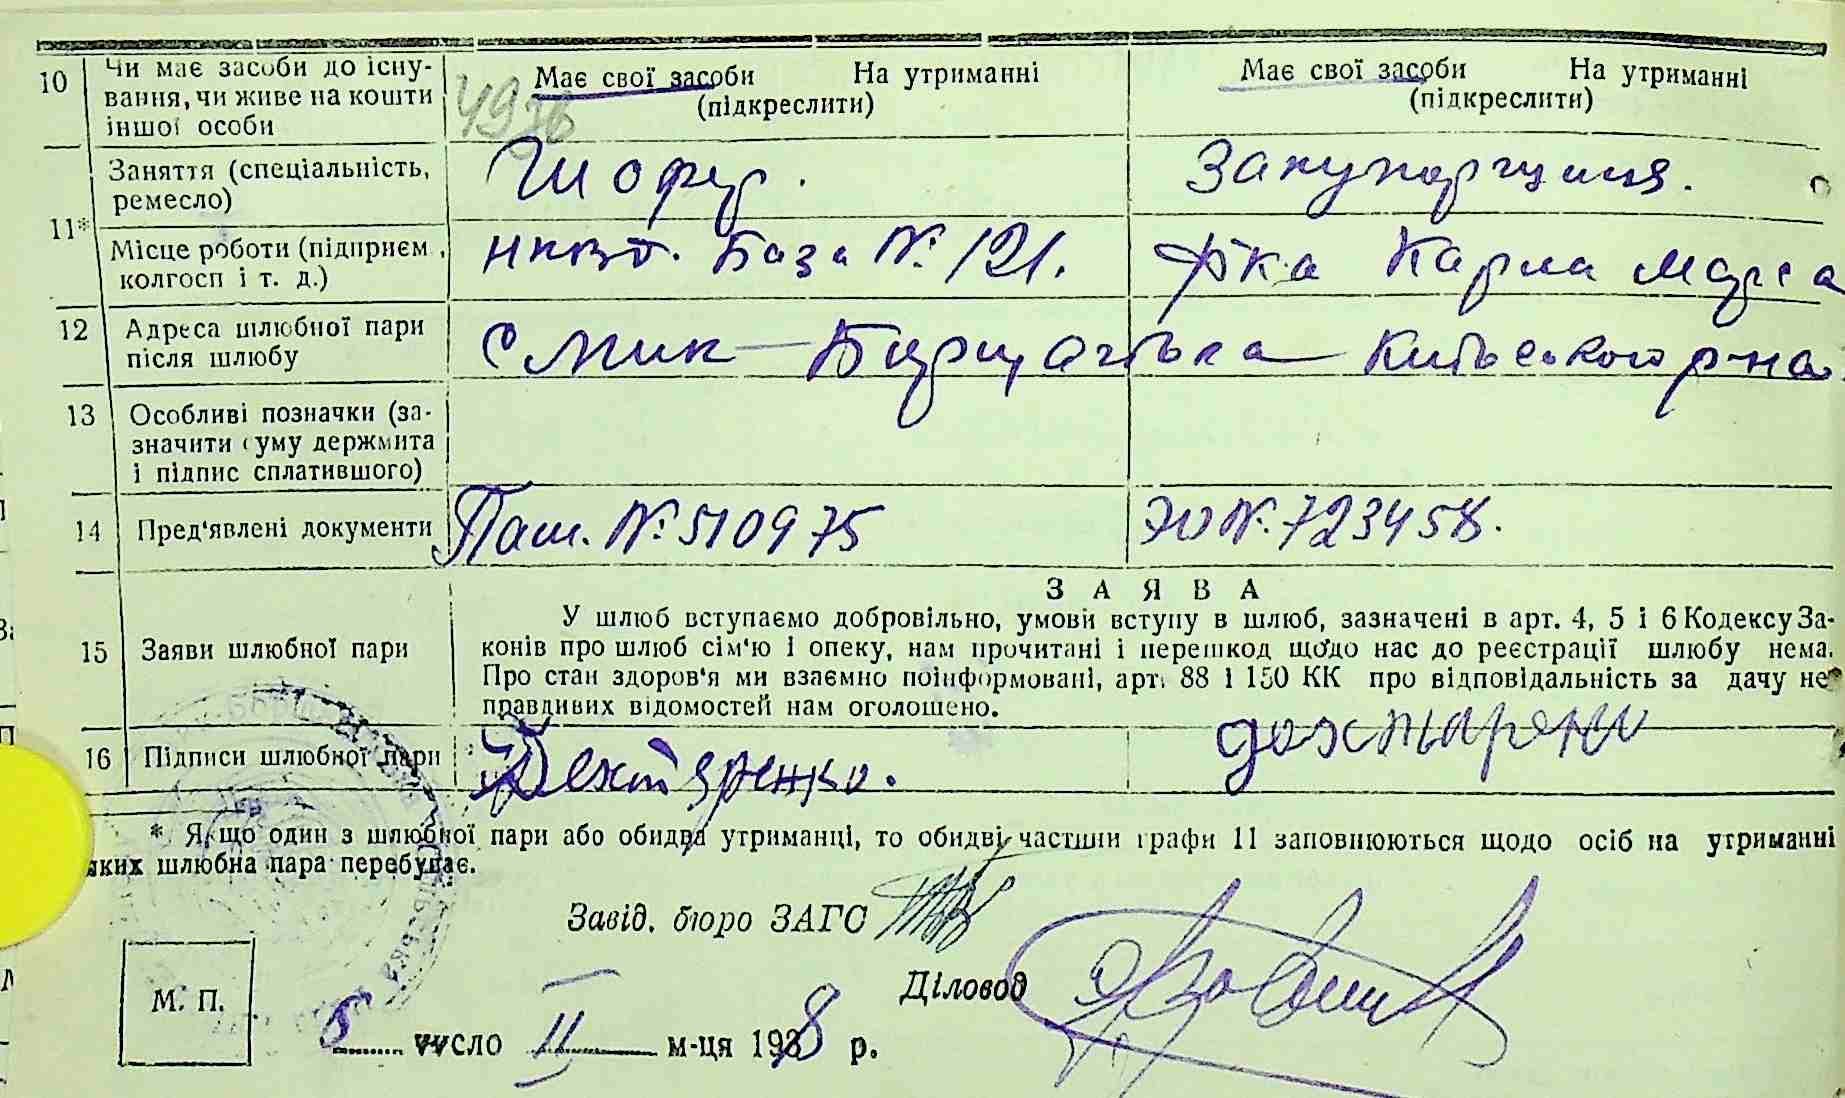 10 Чи має засоби до існу-
вання, чи живе на кошти
іншої особи
Має свої засоби На утриманні
(підкреслити)
Має свої засоби На утриманні
(підкреслити)
11* Заняття (спеціальність,
ремесло)
Шофер.
Закупорщиця.
Місце роботи (підприєм,
колгосп і т. д.)
НКВД. База №. 121.
Ф-ка Карла Маркса
12 Адреса шлюбної пари
після шлюбу
с Мик-Борщагівка Київського р-на
13 Особливі позначки (за-
значити суму держмита
і підпис сплатившого)
14 Пред'явлені документи
Паш. №. 510975
ЭЮ №. 723458.
15 Заяви шлюбної пари
ЗАЯВА
У шлюб вступаємо добровільно, умови вступу в шлюб, зазначені в арт. 4, 5 і 6 Кодексу За-
конів про шлюб сім'ю і опеку, нам прочитані і перешкод щодо нас до реєстрації шлюбу нема.
Про стан здоров'я ми взаємно поінформовані, арт. 88 і 150 КК про відповідальність за дачу не
правдивих відомостей нам оголошено.
16 Підписи шлюбної пари
Дехтяренко.
* Якщо один з шлюбної пари або обидва утриманці, то обидві частини графи 11 заповнюються щодо осіб на утриманні
яких шлюбна пара перебуває.
Завід. бюро ЗАГС
Діловод
М. П.
5 число II м-ця 1938 р.